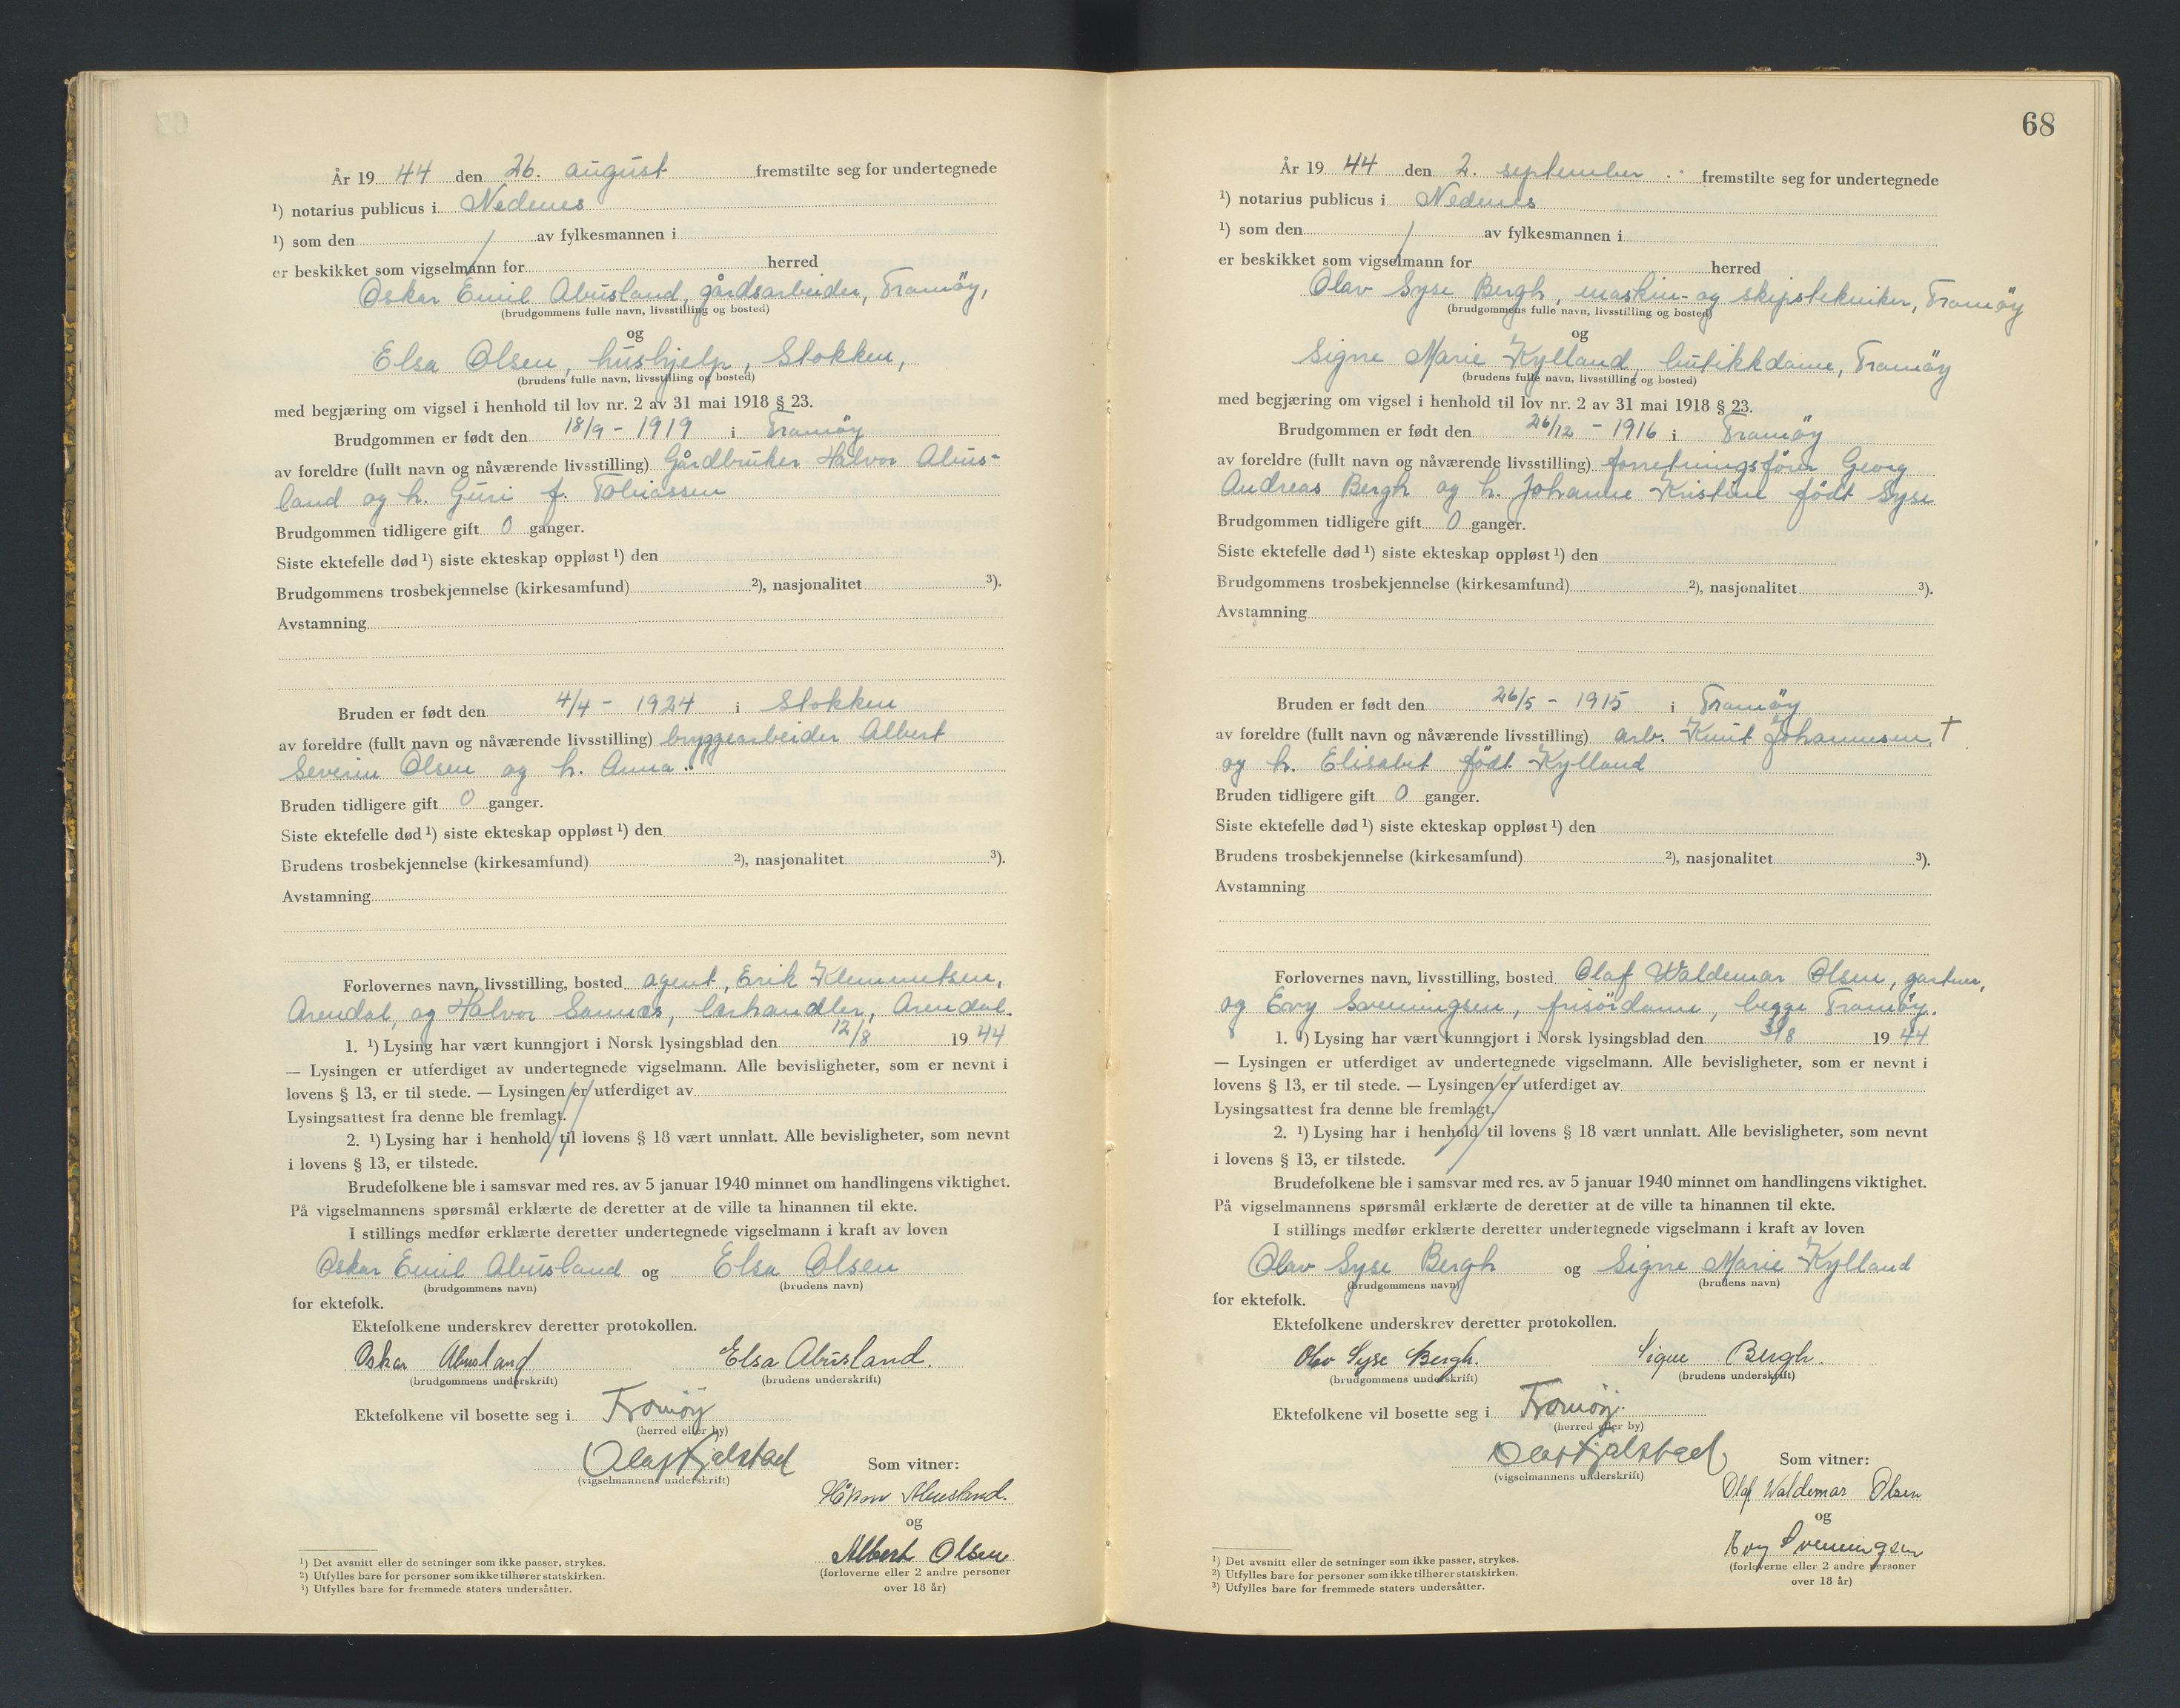 År 19 44 den 26. august fremstilte seg for undertegnede
¹) notarius publicus i Nedenes
¹) som den / av fylkesmannen i
er beskikket som vigselmann for herred
Oskar Emil Abusland, gårdsarbeider, Tromöy,
(brudgommens fulle navn, livsstilling og bosted)
og
Elsa Olsen, hushjelp, Stokken,
(brudens fulle navn, livsstilling og bosted)
med begjæring om vigsel i henhold til lov nr. 2 av 31 mai 1918 § 23.
Brudgommen er født den 18/9 - 1919 i Tromöy
av foreldre (fullt navn og nåværende livsstilling) Gårdbruker Halvor Abus-
land og h. Guri f. Tobiassen
Brudgommen tidligere gift 0 ganger.
Siste ektefelle død ¹) siste ekteskap oppløst ¹) den
Brudgommens trosbekjennelse (kirkesamfund) ²), nasjonalitet ³).
Avstamning
Bruden er født den 4/4 - 1924 i Stokken
av foreldre (fullt navn og nåværende livsstilling) bryggearbeider Albert
Severin Olsen og h. Anna.
Bruden tidligere gift 0 ganger.
Siste ektefelle død ¹) siste ekteskap oppløst ¹) den
Brudens trosbekjennelse (kirkesamfund) ²), nasjonalitet ³).
Avstamning
Forlovernes navn, livsstilling, bosted agent, Erik Klemmetsen,
Arendal, og Halvor Sannæs, lærhandler, Arendal.
1. ¹) Lysing har vært kunngjort i Norsk lysingsblad den 12/8 19 44
— Lysingen er utferdiget av undertegnede vigselmann. Alle bevisligheter, som er nevnt i
lovens § 13, er til stede. — Lysingen er utferdiget av
Lysingsattest fra denne ble fremlagt.
2. ¹) Lysing har i henhold til lovens § 18 vært unnlatt. Alle bevisligheter, som nevnt
i lovens § 13, er tilstede.
Brudefolkene ble i samsvar med res. av 5 januar 1940 minnet om handlingens viktighet.
På vigselmannens spørsmål erklærte de deretter at de ville ta hinannen til ekte.
I stillings medfør erklærte deretter undertegnede vigselmann i kraft av loven
Oskar Emil Abusland og Elsa Olsen
(brudgommens navn) (brudens navn)
for ektefolk.
Ektefolkene underskrev deretter protokollen.
Oskar Abusland Elsa Abusland.
(brudgommens underskrift) (brudens underskrift)
Ektefolkene vil bosette seg i Tromöy
(herred eller by)
Olaf Fjalstad Som vitner:
(vigselmannens underskrift)
Håkon Abusland.
og
Albert Olsen
(forloverne eller 2 andre personer
over 18 år)
¹) Det avsnitt eller de setninger som ikke passer, strykes.
²) Utfylles bare for personer som ikke tilhører statskirken.
³) Utfylles bare for fremmede staters undersåtter.
68
År 19 44 den 2. september fremstilte seg for undertegnede
¹) notarius publicus i Nedenes
¹) som den / av fylkesmannen i
er beskikket som vigselmann for herred
Olav Syse Bergh, maskin- og skipstekniker, Tromöy
(brudgommens fulle navn, livsstilling og bosted)
og
Signe Marie Kylland, butikkdame, Tromöy
(brudens fulle navn, livsstilling og bosted)
med begjæring om vigsel i henhold til lov nr. 2 av 31 mai 1918 § 23.
Brudgommen er født den 26/12 - 1916 i Tromöy
av foreldre (fullt navn og nåværende livsstilling) forretningsförer Georg
Andreas Bergh og h. Johanne Kristine födt Syse
Brudgommen tidligere gift 0 ganger.
Siste ektefelle død ¹) siste ekteskap oppløst ¹) den
Brudgommens trosbekjennelse (kirkesamfund) ²), nasjonalitet ³).
Avstamning
Bruden er født den 26/5 - 1915 i Tromöy
av foreldre (fullt navn og nåværende livsstilling) arb. Knut Johannesen, †
og h. Elisabet födt Kylland
Bruden tidligere gift 0 ganger.
Siste ektefelle død ¹) siste ekteskap oppløst ¹) den
Brudens trosbekjennelse (kirkesamfund) ²), nasjonalitet ³).
Avstamning
Forlovernes navn, livsstilling, bosted Olaf Waldemar Olsen, gartner,
og Evy Svenningsen, frisördame, begge Tromöy.
1. ¹) Lysing har vært kunngjort i Norsk lysingsblad den 19 44
— Lysingen er utferdiget av undertegnede vigselmann. Alle bevisligheter, som er nevnt i
lovens § 13, er til stede. — Lysingen er utferdiget av
Lysingsattest fra denne ble fremlagt.
2. ¹) Lysing har i henhold til lovens § 18 vært unnlatt. Alle bevisligheter, som nevnt
i lovens § 13, er tilstede.
Brudefolkene ble i samsvar med res. av 5 januar 1940 minnet om handlingens viktighet.
På vigselmannens spørsmål erklærte de deretter at de ville ta hinannen til ekte.
I stillings medfør erklærte deretter undertegnede vigselmann i kraft av loven
Olav Syse Bergh og Signe Marie Kylland
(brudgommens navn) (brudens navn)
for ektefolk.
Ektefolkene underskrev deretter protokollen.
Olav Syse Bergh. Signe Bergh.
(brudgommens underskrift) (brudens underskrift)
Ektefolkene vil bosette seg i Tromöy.
(herred eller by)
Olaf Fjalstad Som vitner:
(vigselmannens underskrift)
Olaf Waldemar Olsen
og
Evy Svenningsen
(forloverne eller 2 andre personer
over 18 år)
¹) Det avsnitt eller de setninger som ikke passer, strykes.
²) Utfylles bare for personer som ikke tilhører statskirken.
³) Utfylles bare for fremmede staters undersåtter.